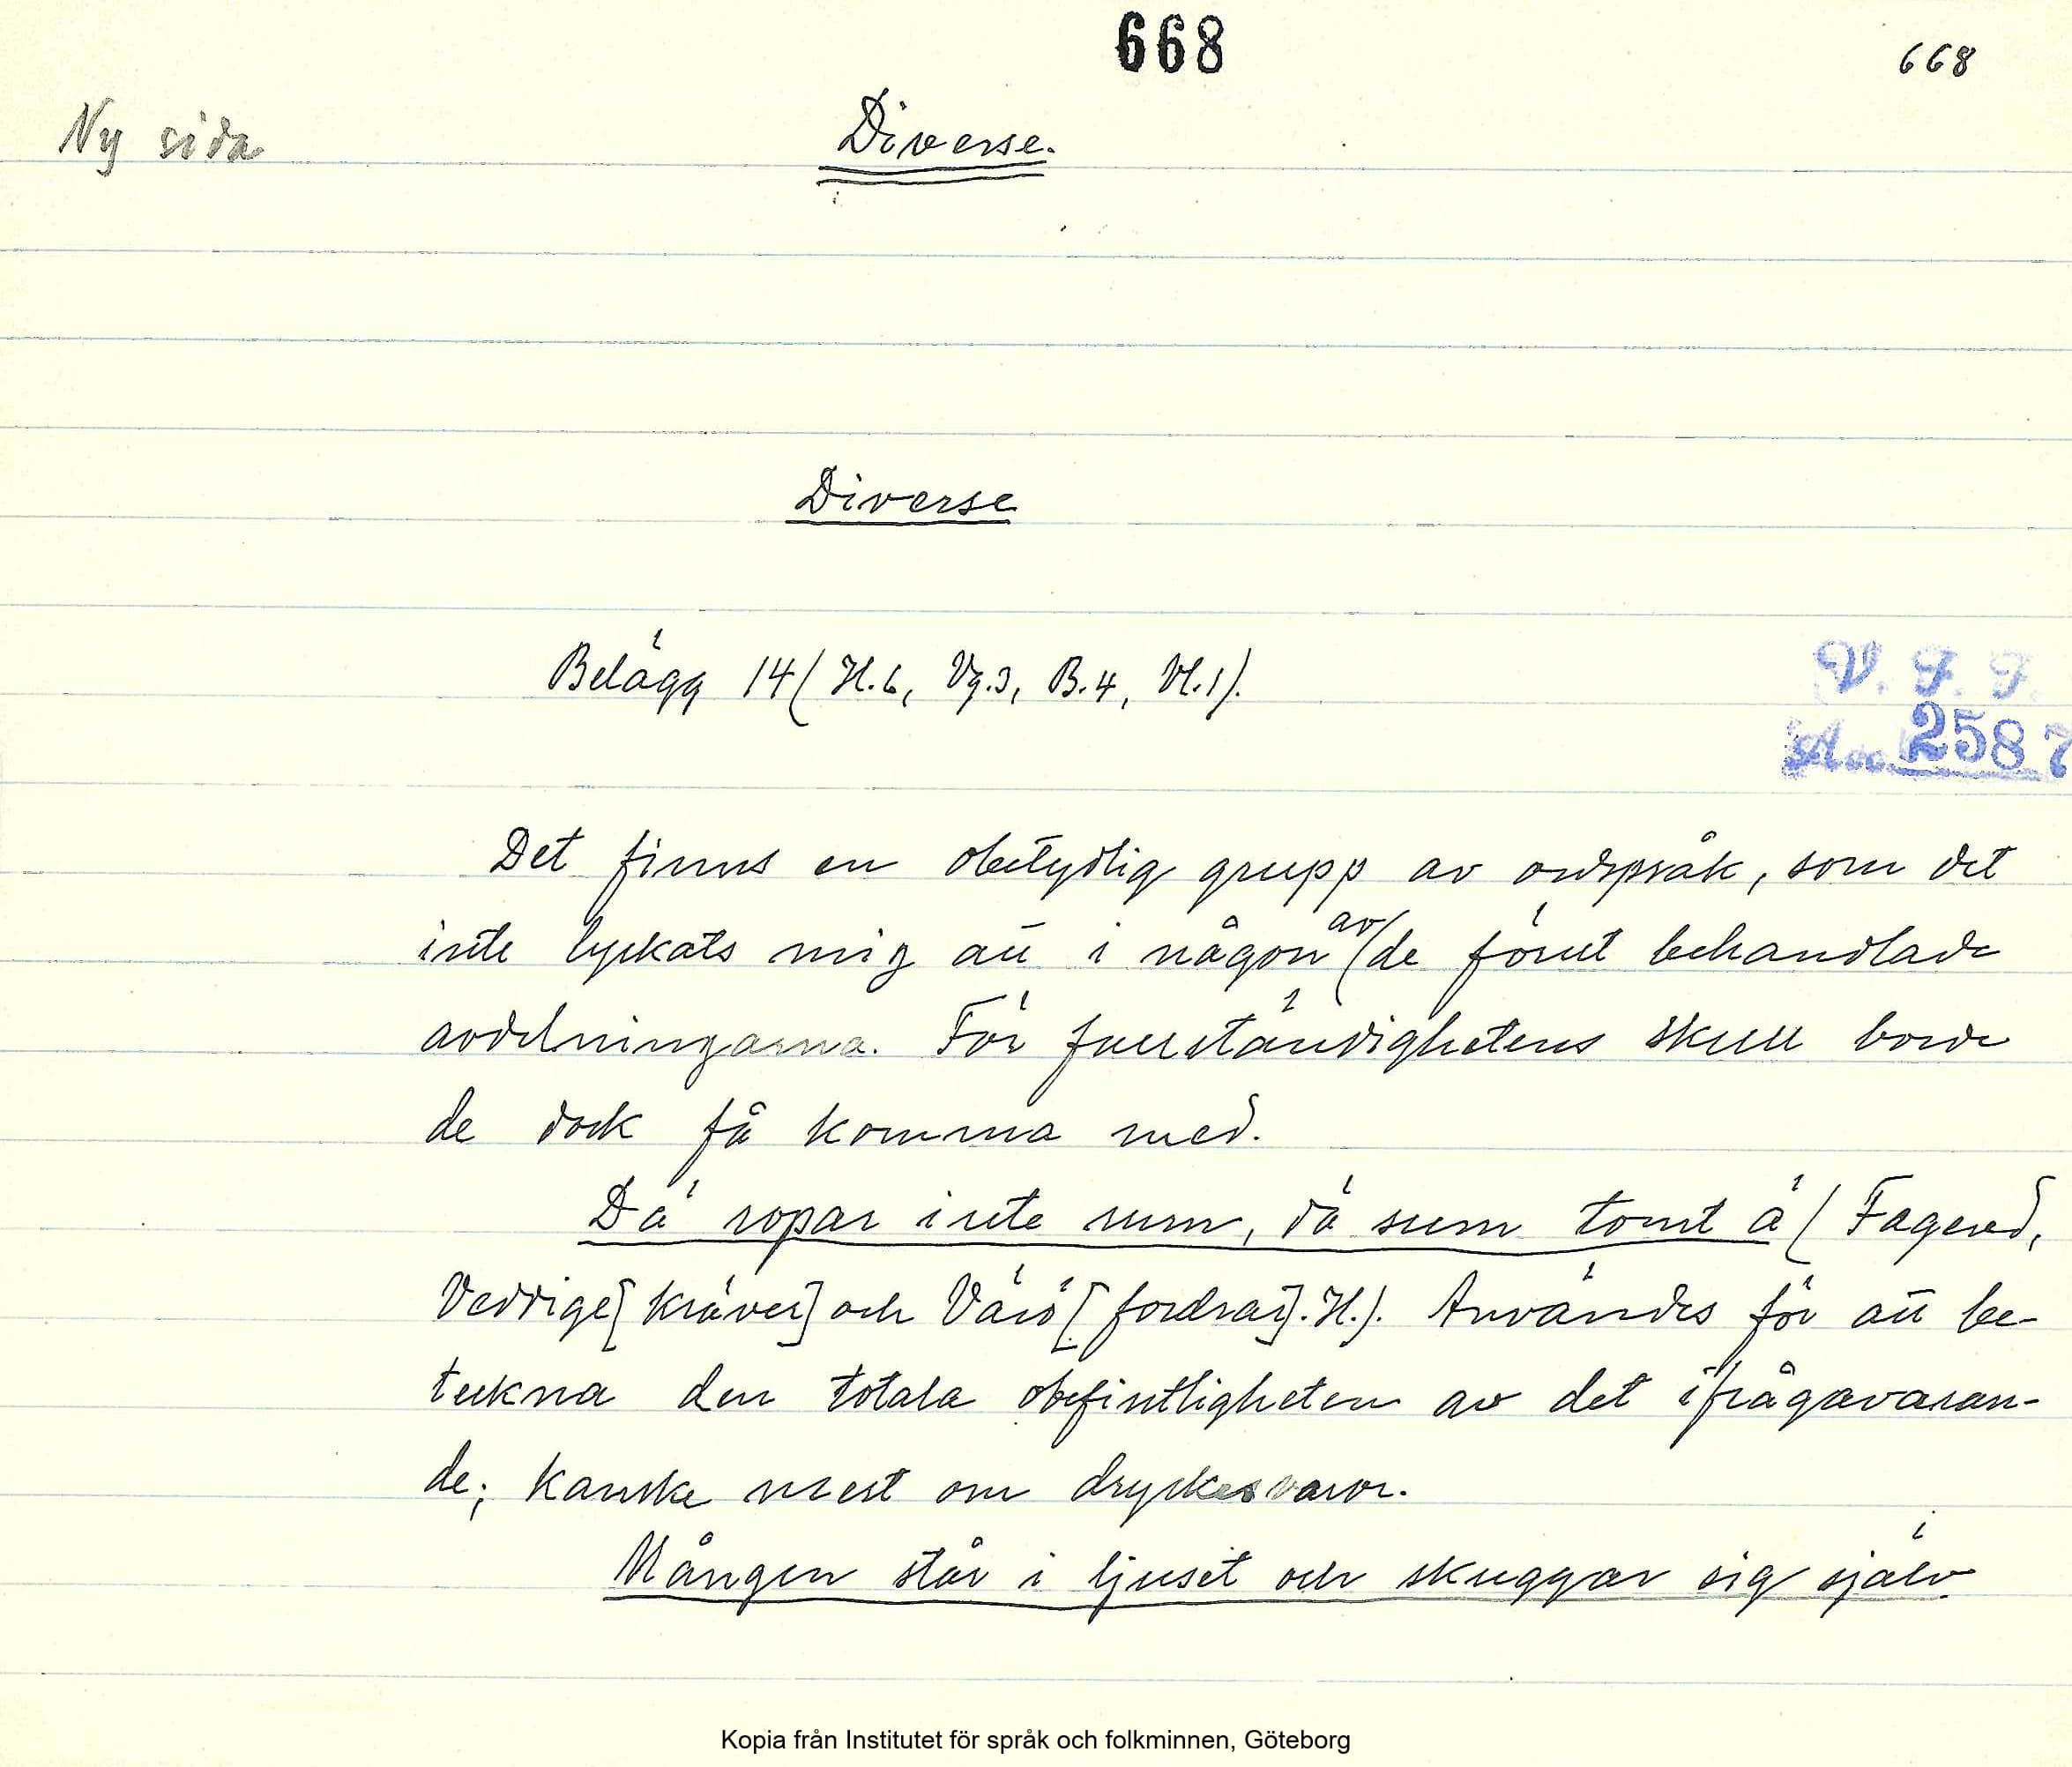 668
668
Ny sida
Diverse.
Diverse
Belägg 14 (H.6, Vg.3, B.4, Vl.1).
V. F. F.
Acc. 2587
Det finns en obetydlig grupp av ordspråk, som det
inte lyckats mig att i någon av de förut behandlade
avdelningarna. För fullständighetens skull borde
de dock få komma med.
Dä ropar inte rum, dä sum tomt ä (Fagered,
Veddige [kräver] och Värö [fordrar]. H.). Användes för att be-
teckna den totala obefintligheten av det ifrågavaran-
de; kanske mest om dryckesvaror.
Mången står i ljuset och skuggar sig själv.
Kopia från Institutet för språk och folkminnen, Göteborg